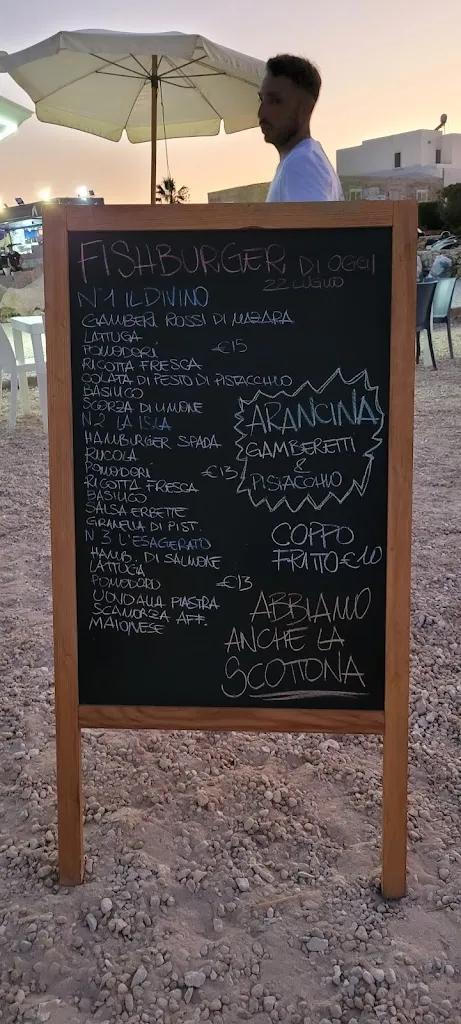 FISHBURGER DI OGGI
22 LUGLIO
N°1 IL DIVINO
GAMBERI ROSSI DI MAZARA
LATTUGA
POMODORI €15
RICOTTA FRESCA
COLATA DI PESTO DI PISTACCHIO
BASILICO
SCORZA DI LIMONE
N°2 LA ISLA
HAMBURGER SPADA
RUCOLA
POMODORI €13
RICOTTA FRESCA
BASILICO
SALSA ERBETTE
GRANELLA DI PIST.
N°3 L'ESAGERATO
HAMB. DI SALMONE
LATTUGA
POMODORO €13
UOVO ALLA PIASTRA
SCAMORZA AFF.
MAIONESE
ARANCINA
GAMBERETTI
&
PISTACCHIO
COPPO
FRITTO €10
ABBIAMO
ANCHE LA
SCOTTONA